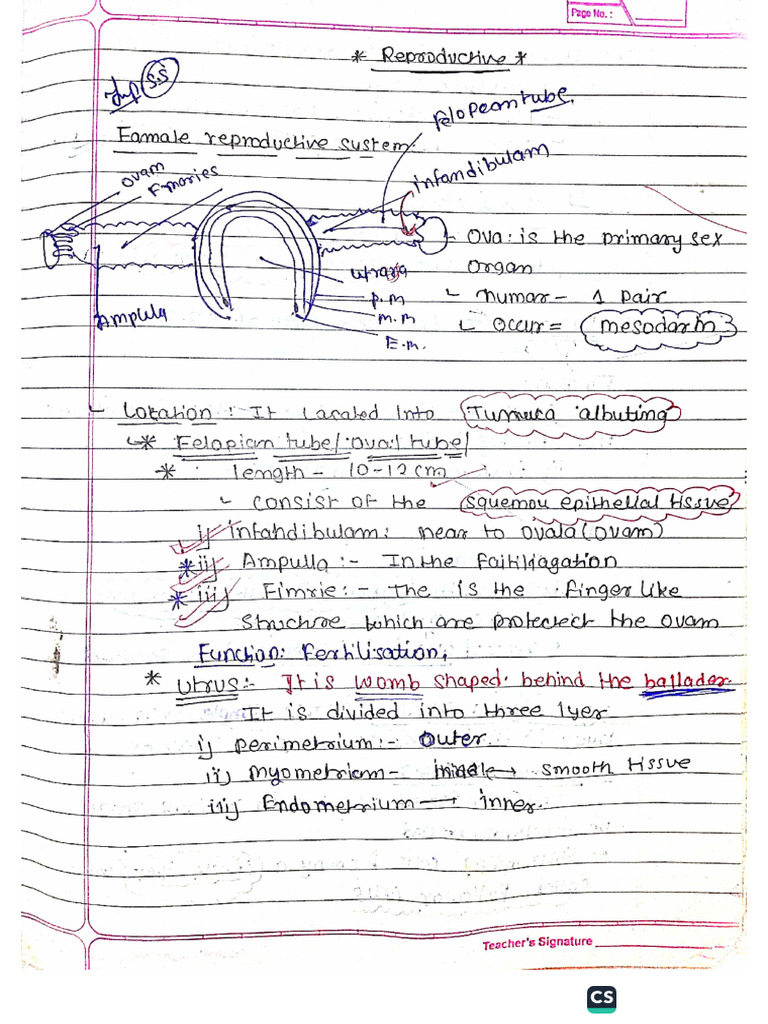 Page No. :
* Reproductive *
Imp S.S
Famale reproductive system.
Felopeam tube.
infandibulam
Ovam
Fimories
Ampula
Utraria
P.M
M.M
E.M.
- Ova: is the primary sex
organ
numar - 1 pair
Occur = mesodarm
Lokation : It Lacated Into Tunuca albuting
* Felopian tube/oval tube/
* length - 10-12 cm
consist of the squemou epithelial tissue
i) Infandibulam: near to ovala (ovam)
* ii) Ampulla :- In the
* iii) Fimrie :- The is the finger like
Structure which are protectect the ovam
Function: Ferhlisation,
* Utrus :- It is womb shaped behind the ballader
It is divided into three lyer
i) perimetrium :- Outer.
ii) Myometricm - middle → smooth tissue
iii) Endometrium → inner.
Teacher's Signature
CS